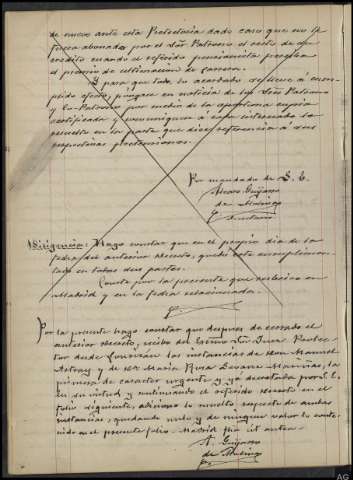 de nuevo ante esta Protectoría dado caso que no le
fuera abonada por el Sor Patrono el resto de su
crédito cuando el referido pensionista perciba
el premio de culminación de carrera.
Y para que todo lo acordado se lleve a cum-
plido efecto, póngase en noticia de los Sres Patrono
y Co-Patrono por medio de la oportuna copia
certificada y comuníquese a cada interesado lo
resuelto en la parte que dice referencia á sus
respectivas pretensiones.
Por mandado de S. E.
Álvaro Guijarro
de
Secretario
Diligencia: Hago constar que en el propio día de la
fecha del anterior decreto, quedó éste cumplimen-
tado en todas sus partes.
Consta por la presente que autorizo en
Madrid y en la fecha relacionada.
Por la presente hago constar que después de cerrado el
anterior decreto, recibo del Excmo Sr. Juez Protec-
tor desde las instancias de Don Manuel
Astray y de Da María Rosa Lozano Mariñas, la
primera de carácter urgente y ya decretada por S. E.
En su virtud y continuando el referido decreto en el
folio siguiente, adiciono lo resuelto respecto de ambas
instancias, quedando nulo y de ningún valor lo conte-
nido en el presente folio. Madrid fha ut antea.
A. Guijarro
de
AG